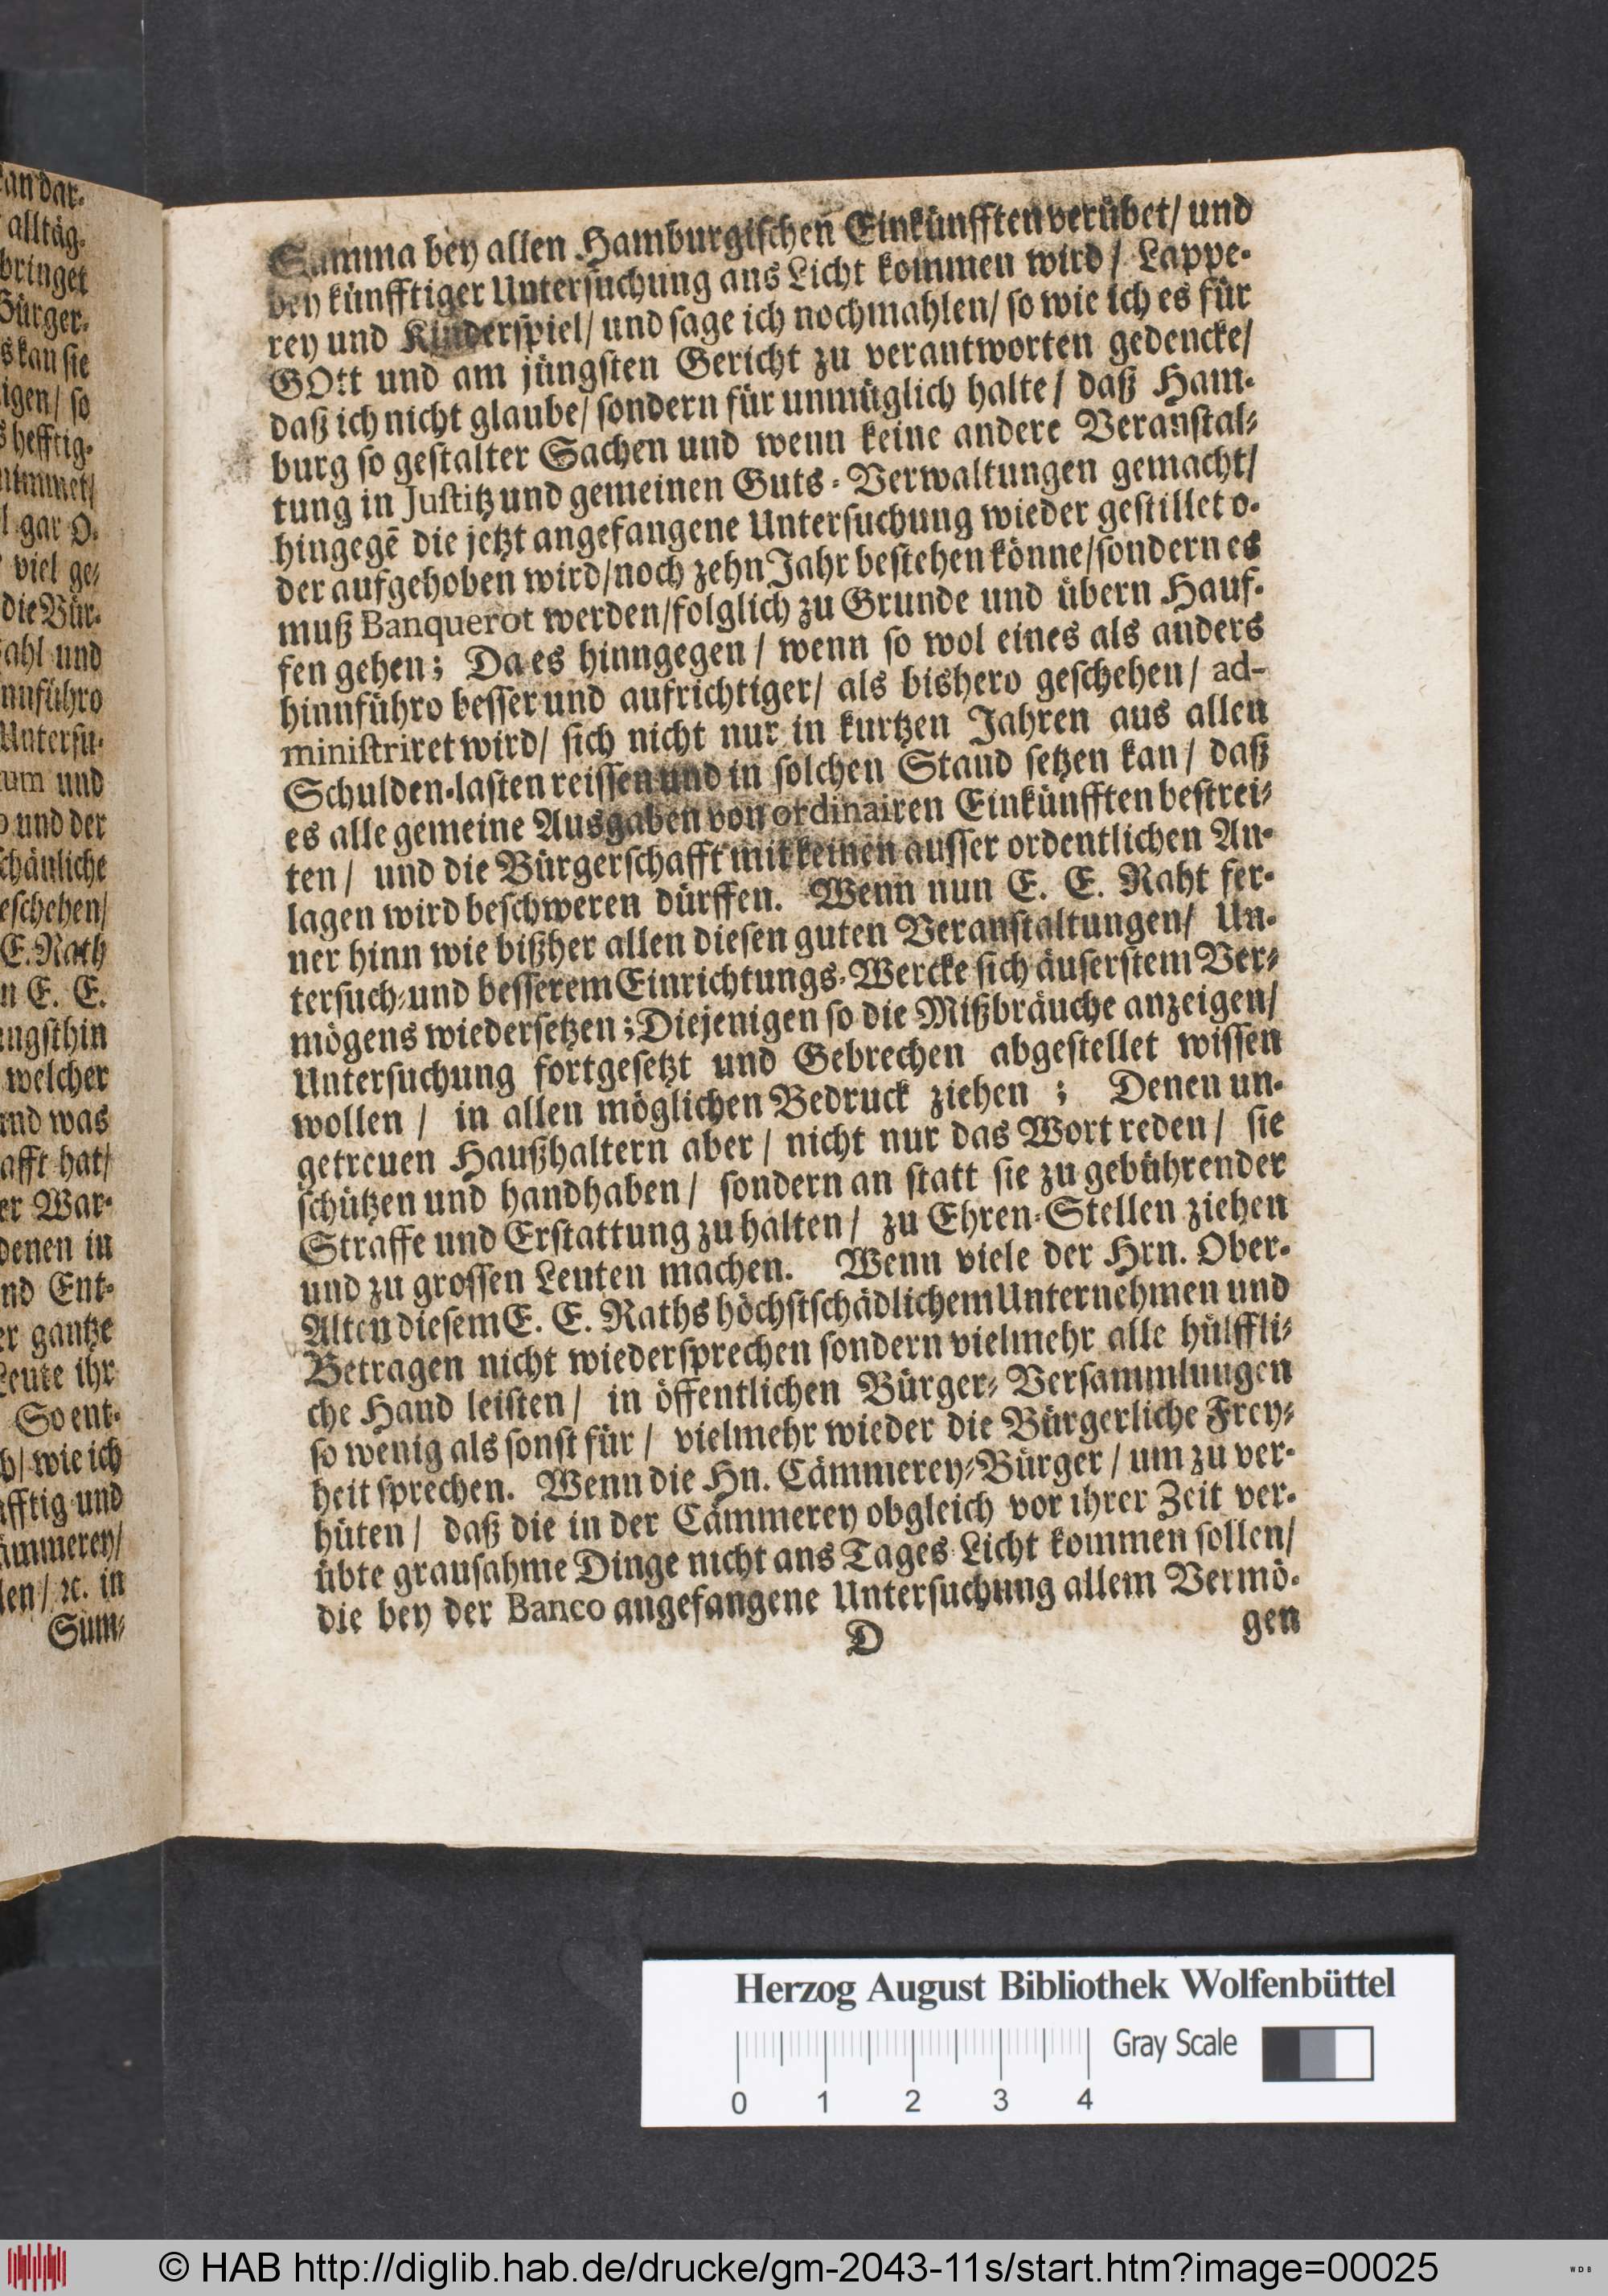 an dar-
alltäg-
bringet
Bürger-
s kan sie
igen/ so
s hefftig-
nimmet/
l gar O-
viel ge-
die Bür-
ahl und
nnführo
Untersu-
um und
o und der
chäuliche
eschehen/
E. Rath
n E. E.
ngsthin
welcher
nd was
afft hat/
er War-
denen in
nd Ent-
er gantze
Leute ihr
So ent-
b/ wie ich
afftig und
ämmerey/
len/ ꝛc. in
Sum-
Summa bey allen Hamburgischen Einkünfften verübet/ und
bey künfftiger Untersuchung ans Licht kommen wird/ Lappe-
rey und Kinderspiel/ und sage ich nochmahlen/ so wie ich es für
GOtt und am jüngsten Gericht zu verantworten gedencke/
daß ich nicht glaube/ sondern für unmüglich halte/ daß Ham-
burg so gestalter Sachen und wenn keine andere Veranstal-
tung in Justitz und gemeinen Guts-Verwaltungen gemacht/
hingegē die jetzt angefangene Untersuchung wieder gestillet o-
der aufgehoben wird/ noch zehn Jahr bestehen könne/ sondern es
muß Banquerot werden/ folglich zu Grunde und übern Hauf-
fen gehen; Da es hinngegen/ wenn so wol eines als anders
hinnführo besser und aufrichtiger/ als bishero geschehen/ ad-
ministriret wird/ sich nicht nur in kurtzen Jahren aus allen
Schulden-lasten reissen und in solchen Stand setzen kan/ daß
es alle gemeine Ausgaben von ordinairen Einkünfften bestrei-
ten/ und die Bürgerschafft mit keinen ausser ordentlichen An-
lagen wird beschweren dürffen. Wenn nun E. E. Raht fer-
ner hinn wie bißher allen diesen guten Veranstaltungen/ Un-
tersuch-und besserem Einrichtungs-Wercke sich äuserstem Ver-
mögens wiedersetzen; Diejenigen so die Mißbräuche anzeigen/
Untersuchung fortgesetzt und Gebrechen abgestellet wissen
wollen/ in allen möglichen Bedruck ziehen; Denen un-
getreuen Haußhaltern aber/ nicht nur das Wort reden/ sie
schützen und handhaben/ sondern an statt sie zu gebührender
Straffe und Erstattung zu halten/ zu Ehren-Stellen ziehen
und zu grossen Leuten machen. Wenn viele der Hrn. Ober-
Alten diesem E. E. Raths höchstschädlichem Unternehmen und
Betragen nicht wiedersprechen sondern vielmehr alle hülffli-
che Hand leisten/ in öffentlichen Bürger-Versammlungen
so wenig als sonst für/ vielmehr wieder die Bürgerliche Frey-
heit sprechen. Wenn die Hn. Cämmerey-Bürger/ um zu ver-
hüten/ daß die in der Cämmerey obgleich vor ihrer Zeit ver-
übte grausahme Dinge nicht ans Tages Licht kommen sollen/
die bey der Banco angefangene Untersuchung allem Vermö-
D
gen
Herzog August Bibliothek Wolfenbüttel
Gray Scale
0 1 2 3 4
© HAB http://diglib.hab.de/drucke/gm-2043-11s/start.htm?image=00025
WDB